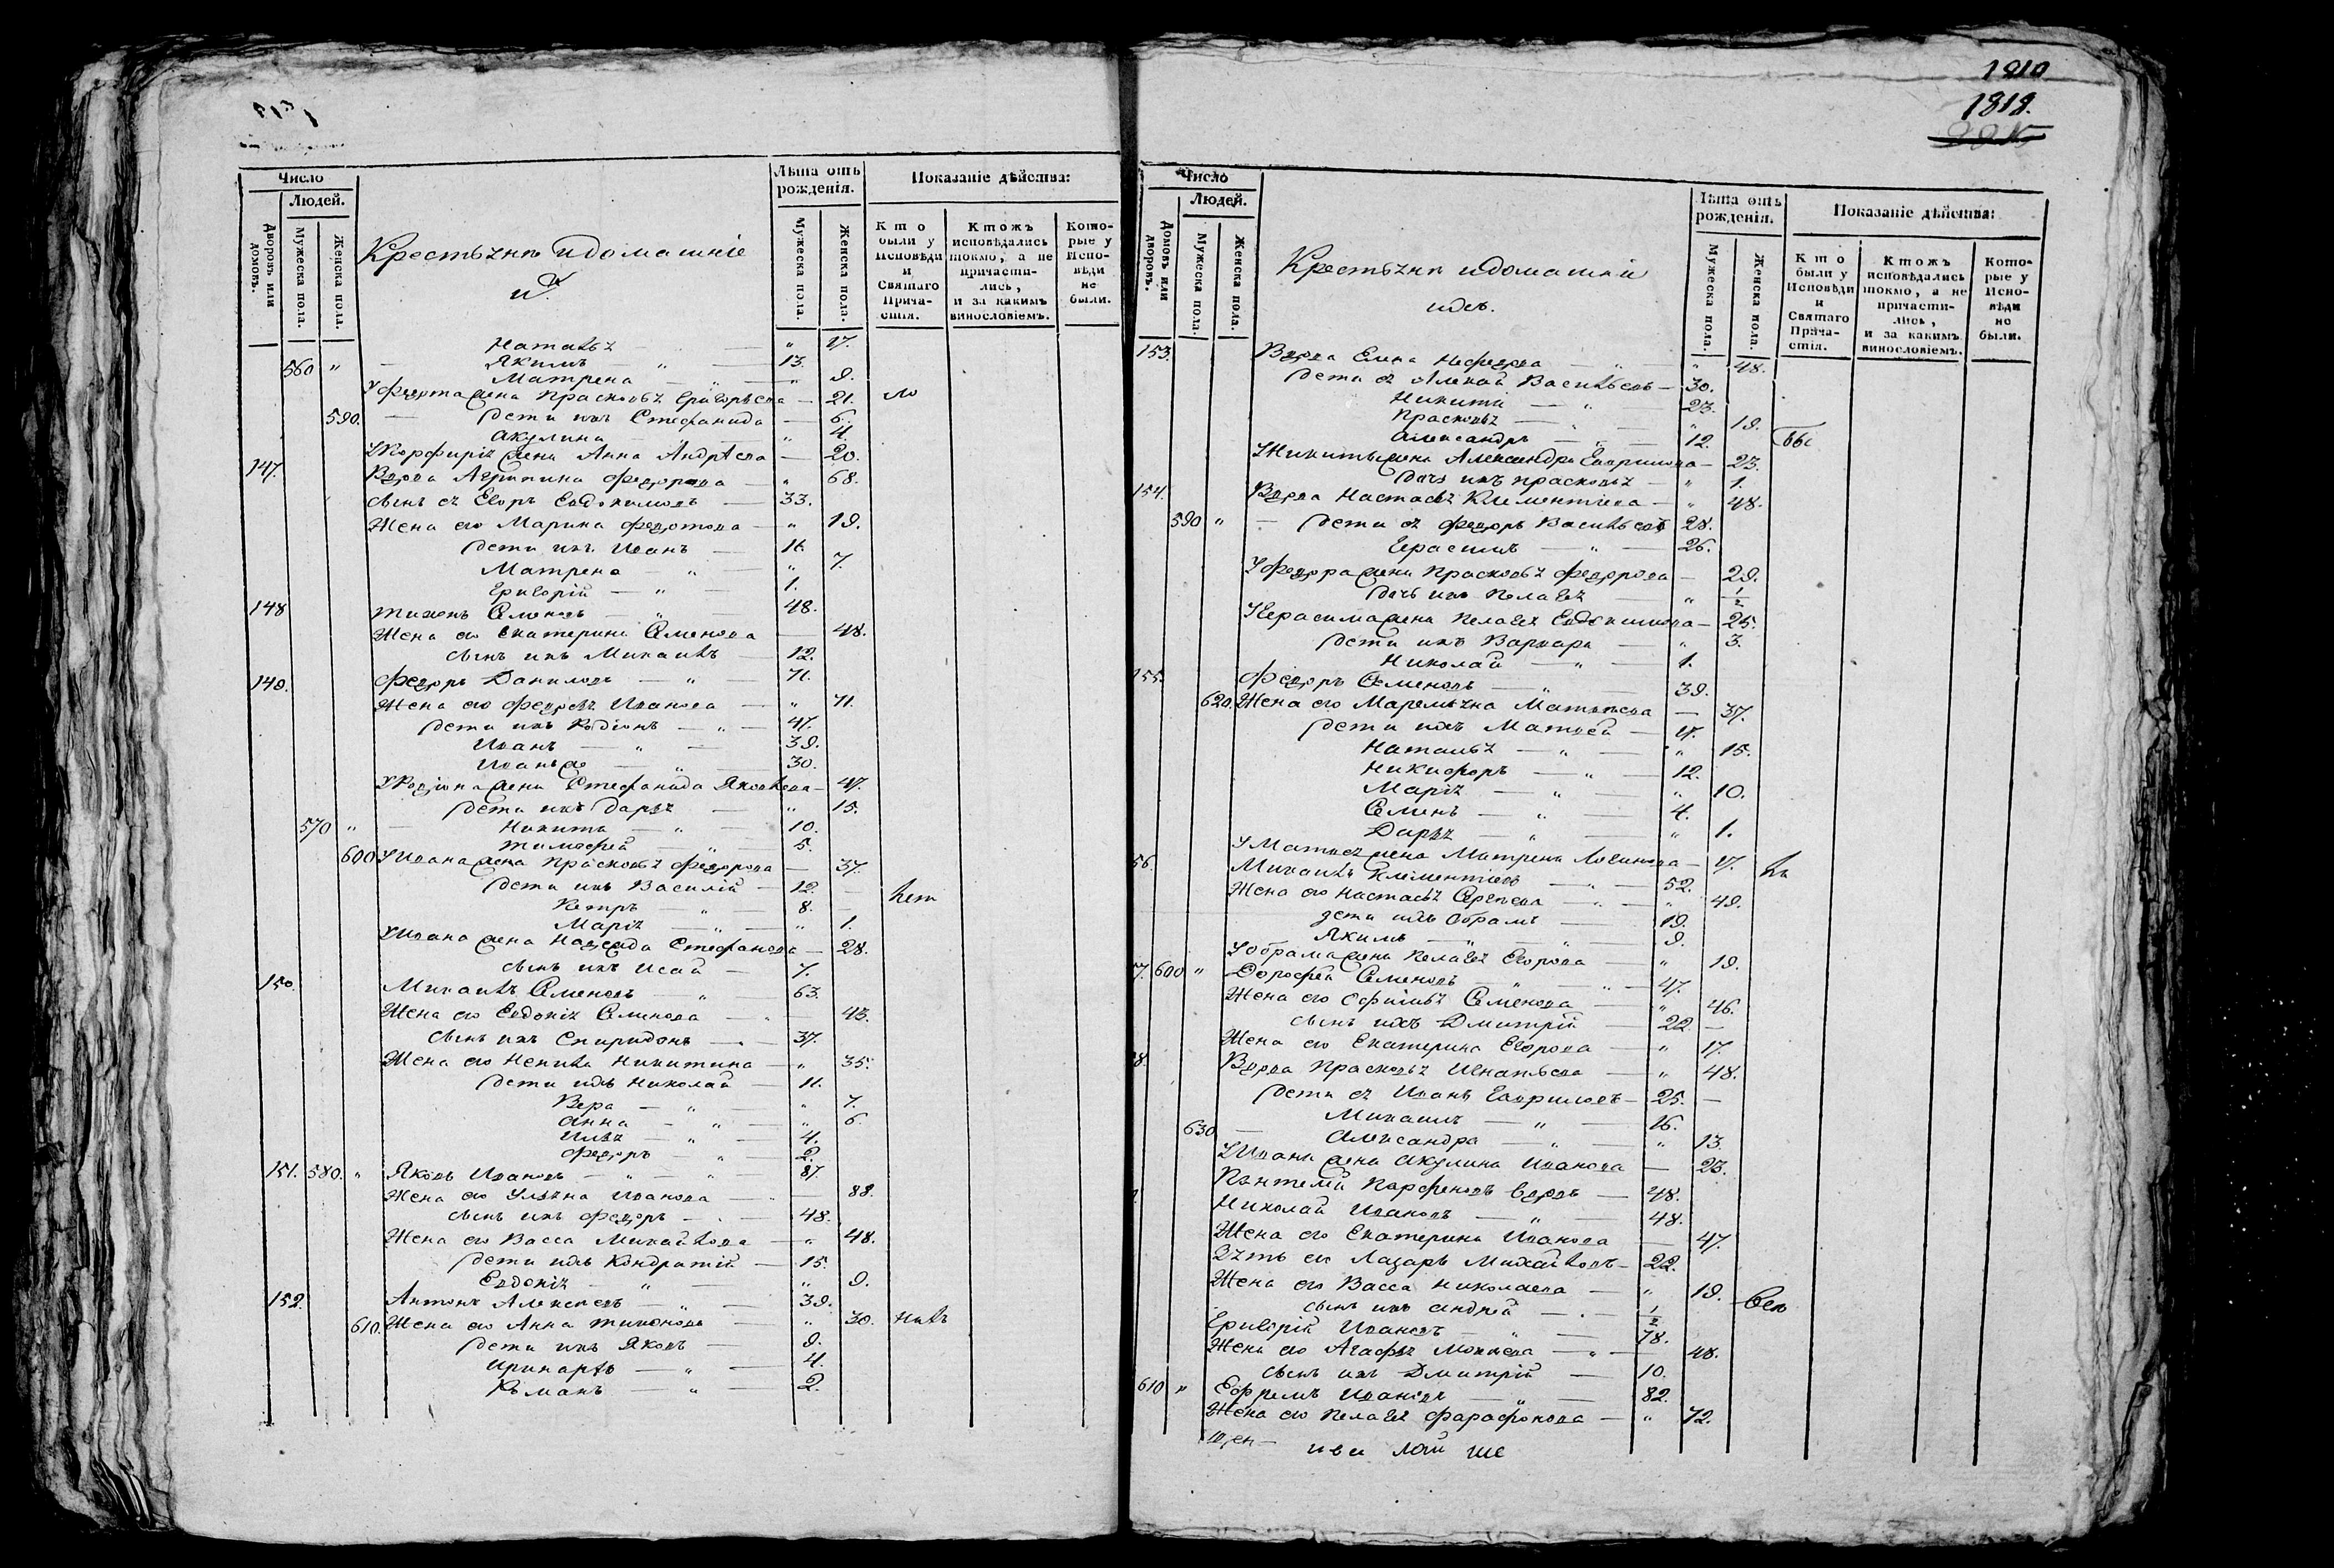 Число
Людей.
Дворовъ или домовъ.
Мужеска пола.
Женска пола.
Крестьяня идомашніе
Лѣта отъ рожденія.
Мужеска пола.
Женска пола.
Показаніе дѣйства:
Кто были у Исповѣди и Святаго Прича-стія.
Ктожъ исповѣдались токмо, а не причасти-лись, и за какимъ винословіемъ.
Кото-рые у Испо-вѣди не были.
Наталья — " 17.
560 " — Якимъ — " — 13.
Матрена — " — " 9.
Уфедота жена Прасковья Григорьева — 21.
590. — дети ихъ Стефанида — 6.
Акулина — " 4.
Упорфирія жена Анна Андрѣева — 20.
147. Вдова Агрипина Федорова — " 68.
сынъ ея Егоръ Евдокимовъ — 33.
Жена его Марина Федотова — " 19.
дети ихъ Иванъ — 11.
Матрена — " — " 7.
Григорій — " — 1.
148 Тихонъ Семеновъ — " 48.
Жена его Екатерина Семенова — 48.
сынъ ихъ Михаилъ — 12.
149. Федоръ Даниловъ — " — 71.
Жена его Федосья Иванова — " 71.
дети ихъ Родіонъ — " — 47.
Иванъ — " — 39.
Иванъ же — " — 30.
Уродіона жена Стефанида Яковлева — 47.
дети ихъ Дарья — " 15.
570 " — Никита — " — 10.
Тимофей — " — 5.
600 Уивана жена Прасковья Федорова — 37.
дети ихъ Василій — 12. —
Петръ — " — 8. —
Марія — " — " 1.
Уивана жена Надежда Стефанова — 28.
сынъ ихъ Исай — 7.
150. Михаилъ Семеновъ — " — 63.
Жена его Евдокія Семенова — " — 43.
сынъ ихъ Спиридонъ — 37.
Жена его Ненила Никитина — " 35.
дети ихъ Николай — 11.
Вера — " — " 7.
Анна — " — " 6.
Илья — " — 4.
Федоръ — " — 2.
151. 580. " Яковъ Ивановъ — " — " 87.
Жена его Ульяна Иванова — " — 88.
сынъ ихъ Федоръ — 48.
Жена его Васса Михайлова — " 48.
дети ихъ Кондратій — 15.
Евдокія — " — " 9.
152. Антонъ Алексеевъ — " — 39.
610. Жена его Анна Тихонова — " 30.
дети ихъ Яковъ — 9.
Иринархъ — " — 4.
Романъ — " — 2.
1810
1812.
Число
Людей.
Домовъ или дворовъ.
Мужеска пола.
Женска пола.
Крестьяня идомашніи
ихъ.
Лѣта отъ рожденія.
Мужеска пола.
Женска пола.
Показаніе дѣйства:
Кто были у Исповѣди и Святаго Прича-стія.
Ктожъ исповѣдались токмо, а не причасти-лись, и за какимъ винословіемъ.
Кото-рые у Испо-вѣди не были.
153. Вдова Елена Нефедова — " — " 48.
дети ея Алексей Васильевъ — 30.
Никита — " — 23.
Прасковья — " — " 19.
Александръ — " — 12.
Уникиты жена Александра Гаврилова — 23.
дочь ихъ Прасковья — " 1.
154. Вдова Настасья Климентіева — " 48.
590 " — дети ея Федоръ Васильевъ 28.
Герасимъ — " — 26.
Уфедора жена Прасковья Федорова — 29.
дочь ихъ Пелагея — " 1/2
Угерасима жена Пелагея Евдокимова — 25.
дети ихъ Варвара — " 3.
Николай — " — 1.
155. Федоръ Семеновъ — " — 39.
620. Жена его Маремьяна Матвеева — 37.
дети ихъ Матвей — 17.
Наталья — " — " 15.
Никифоръ — " — 12.
Марія — " — " 10.
Семенъ — " — 4.
Дарья — " — " 1.
Уматвея жена Матрена Логинова — 17.
56. Михаилъ Климентіевъ — " — 52.
Жена его Настасья Сергеева — " — " 49.
дети ихъ Обрамъ — 19.
Якимъ — " — " 9.
Уобрама жена Пелагея Егорова — " 19.
7. 600 " Дорофей Семеновъ — " — " 47.
Жена его Офимья Семенова — " 46.
сынъ ихъ Дмитрій — 22 —
Жена его Екатерина Егорова — " 17.
8. Вдова Прасковья Игнатьева — " 48.
дети ея Иванъ Гавриловъ — 25. —
Михаилъ — " — 16.
630 — Александра — " — " 13.
Уивана жена Акулина Иванова — 23.
Пантелей Парфеновъ вдовъ — 48.
Николай Ивановъ — " — 48.
Жена его Екатерина Иванова — 47.
Зять его Лазарь Михайловъ — 22.
Жена его Васса Николаева — " 19.
сынъ ихъ Андрей — 1/2
Григорій Ивановъ — " — 78.
Жена его Агафья Мокеева — " — 48.
сынъ ихъ Дмитрій — 10.
610 " Ефремъ Ивановъ — " — 82.
Жена его Пелагея Фарафонова — " 72.